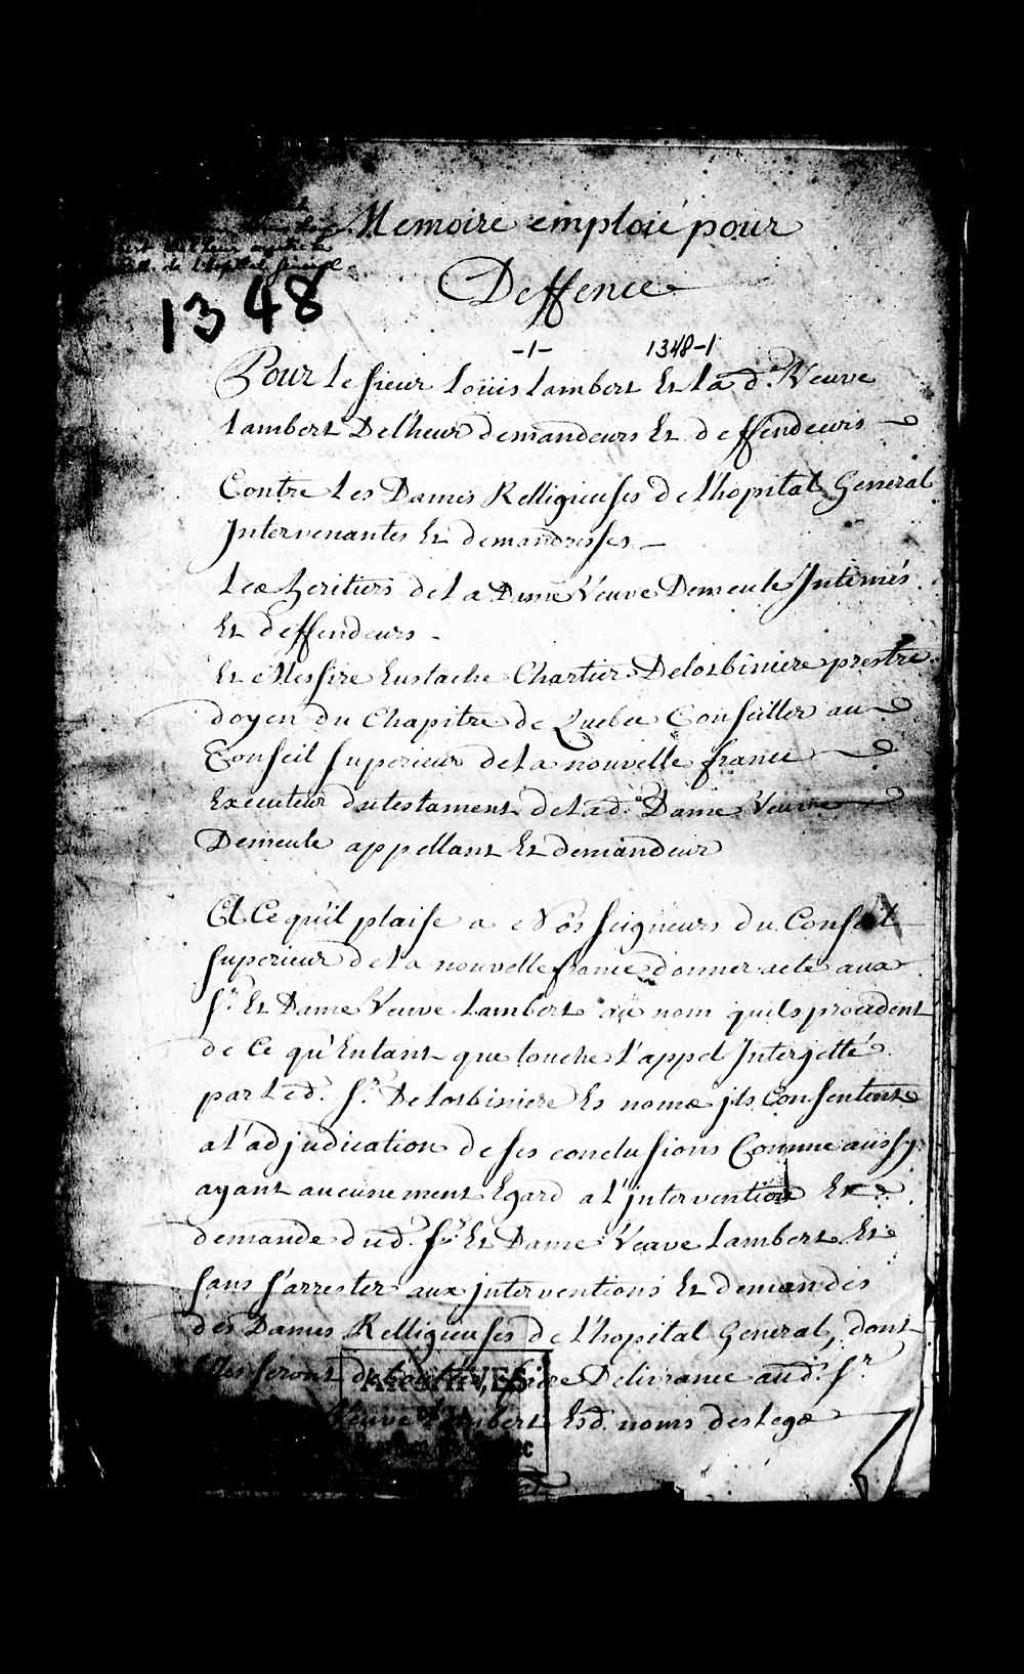 Memoire emploié pour
Deffence
1348
-1- 1348-1
Pour Le sieur Loüis Lambert Et La d.e Veuve
Lambert Delheur demandeurs Et deffendeurs
Contre Les Dames Relligieuses de l'hopital General
Intervenantes Et demandresses
Les heritiers de La Dame Veuve Demeule Intimés
Et deffendeurs
Et Messire Eustache Chartier Delotbiniere prestre
doyen du Chapitre de Quebec Conseiller au
Conseil superieur de La nouvelle france
Executeur du testament de Lad.e Dame Veuve
Demeule appellant Et demandeur
A Ce qu'il plaise a Nos seigneurs du Conseil
superieur de La nouvelle france donner acte aux
s.r Et Dame Veuve Lambert au nom quils procedent
de Ce qu'Entant que touche L'appel Interjetté
par Led. s.r Delotbiniere Es noms jls Consentent
a l'adjudication de ses conclusions Comme aussy
ayant aucunement Egard a L'jntervention Et
demande dud. s.r Et Dame Veuve Lambert Et
sans s'arrester aux jnterventions Et demandes
des Dames Relligieuses de l'hopital General, dont
Elles seront deboutées, faire Delivrance aud. s.r
Veuve Lambert Esd. noms des Legs
ARCHIVES